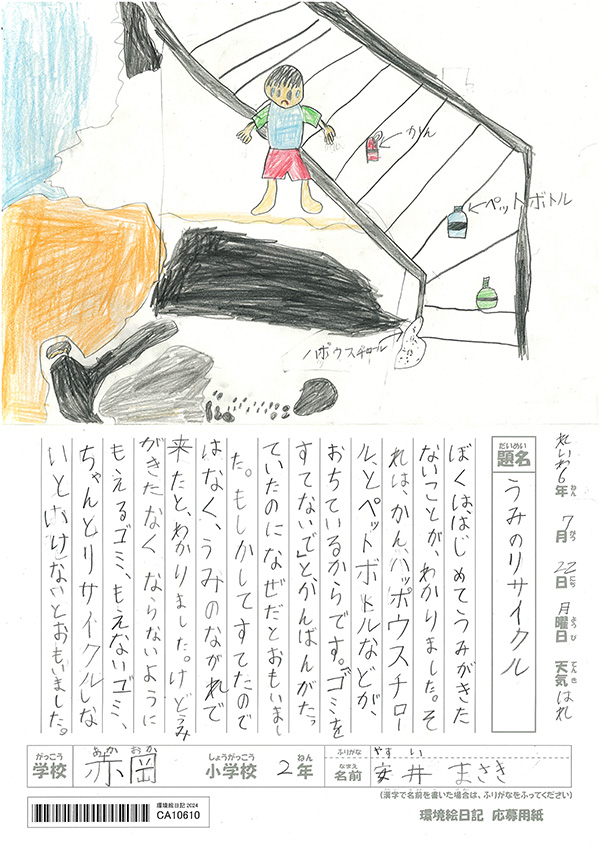 かん
ペットボトル
ハッポウスチロール
れいわ6年 7月 22日 月曜日 天気 はれ
ねん がつ にち ようび てんき
だいめい
題名 うみのリサイクル
ぼくは、はじめてうみがきた
ないことが、わかりました。そ
れは、かん、ハッポウスチロー
ル、とペットボトルなどが、
おちているからです。「ゴミを
すてないで」とかんばんがたっ
ていたのになぜだとおもいまし
た。もしかしてすてたので
はなく、うみのながれで
来たと、わかりました。けどうみ
がきたなく ならないように
もえるゴミ、もえないゴミ、
ちゃんとリサイクルしな
いといけないとおもいました。
がっこう あか おか しょうがっこう ねん ふりがな やす い
学校 赤岡 小学校 2年 なまえ 名前 安井 まさき
(漢字で名前を書いた場合は、ふりがなをふってください)
環境絵日記 2024
CA10610
環境絵日記 応募用紙